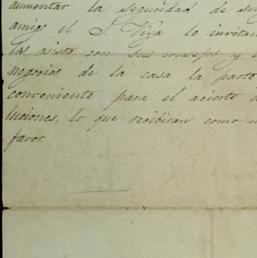 aumentar la seguridad de su
amigo el S. Vega lo invitan
las asista con sus consejos y
negocios de la casa la parte
conveniente para el acierto
luciones, lo que recibiran como
favor.